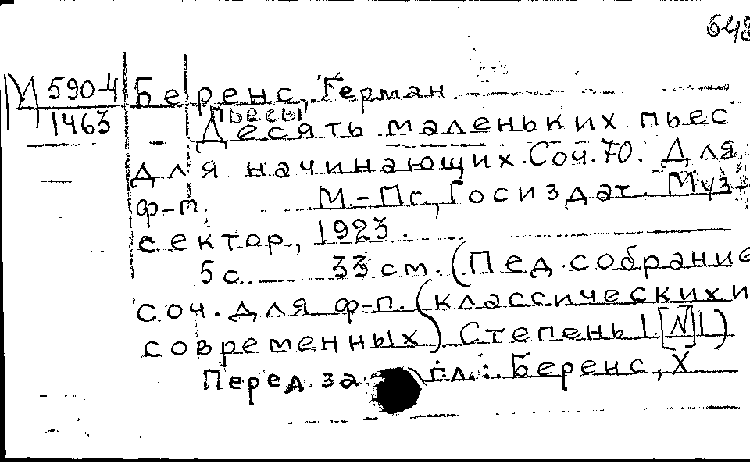 648
М 590-4 Беренс, Герман
1463 Пьесы
Десять маленьких пьес
для начинающих. Соч. 70. Для
ф-п. М-Пг, Госиздат. Муз.
сектор, 1923.
5 с. 33 см. (Пед. собрание
соч. для ф-п. (классических и
современных) Степень I [N 1)
Перед заг. гл.: Беренс, Х